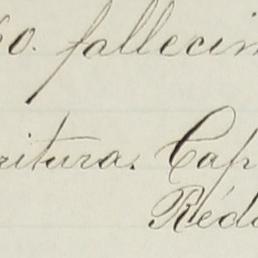 60. fallecim
ritura. Cap
Rédi